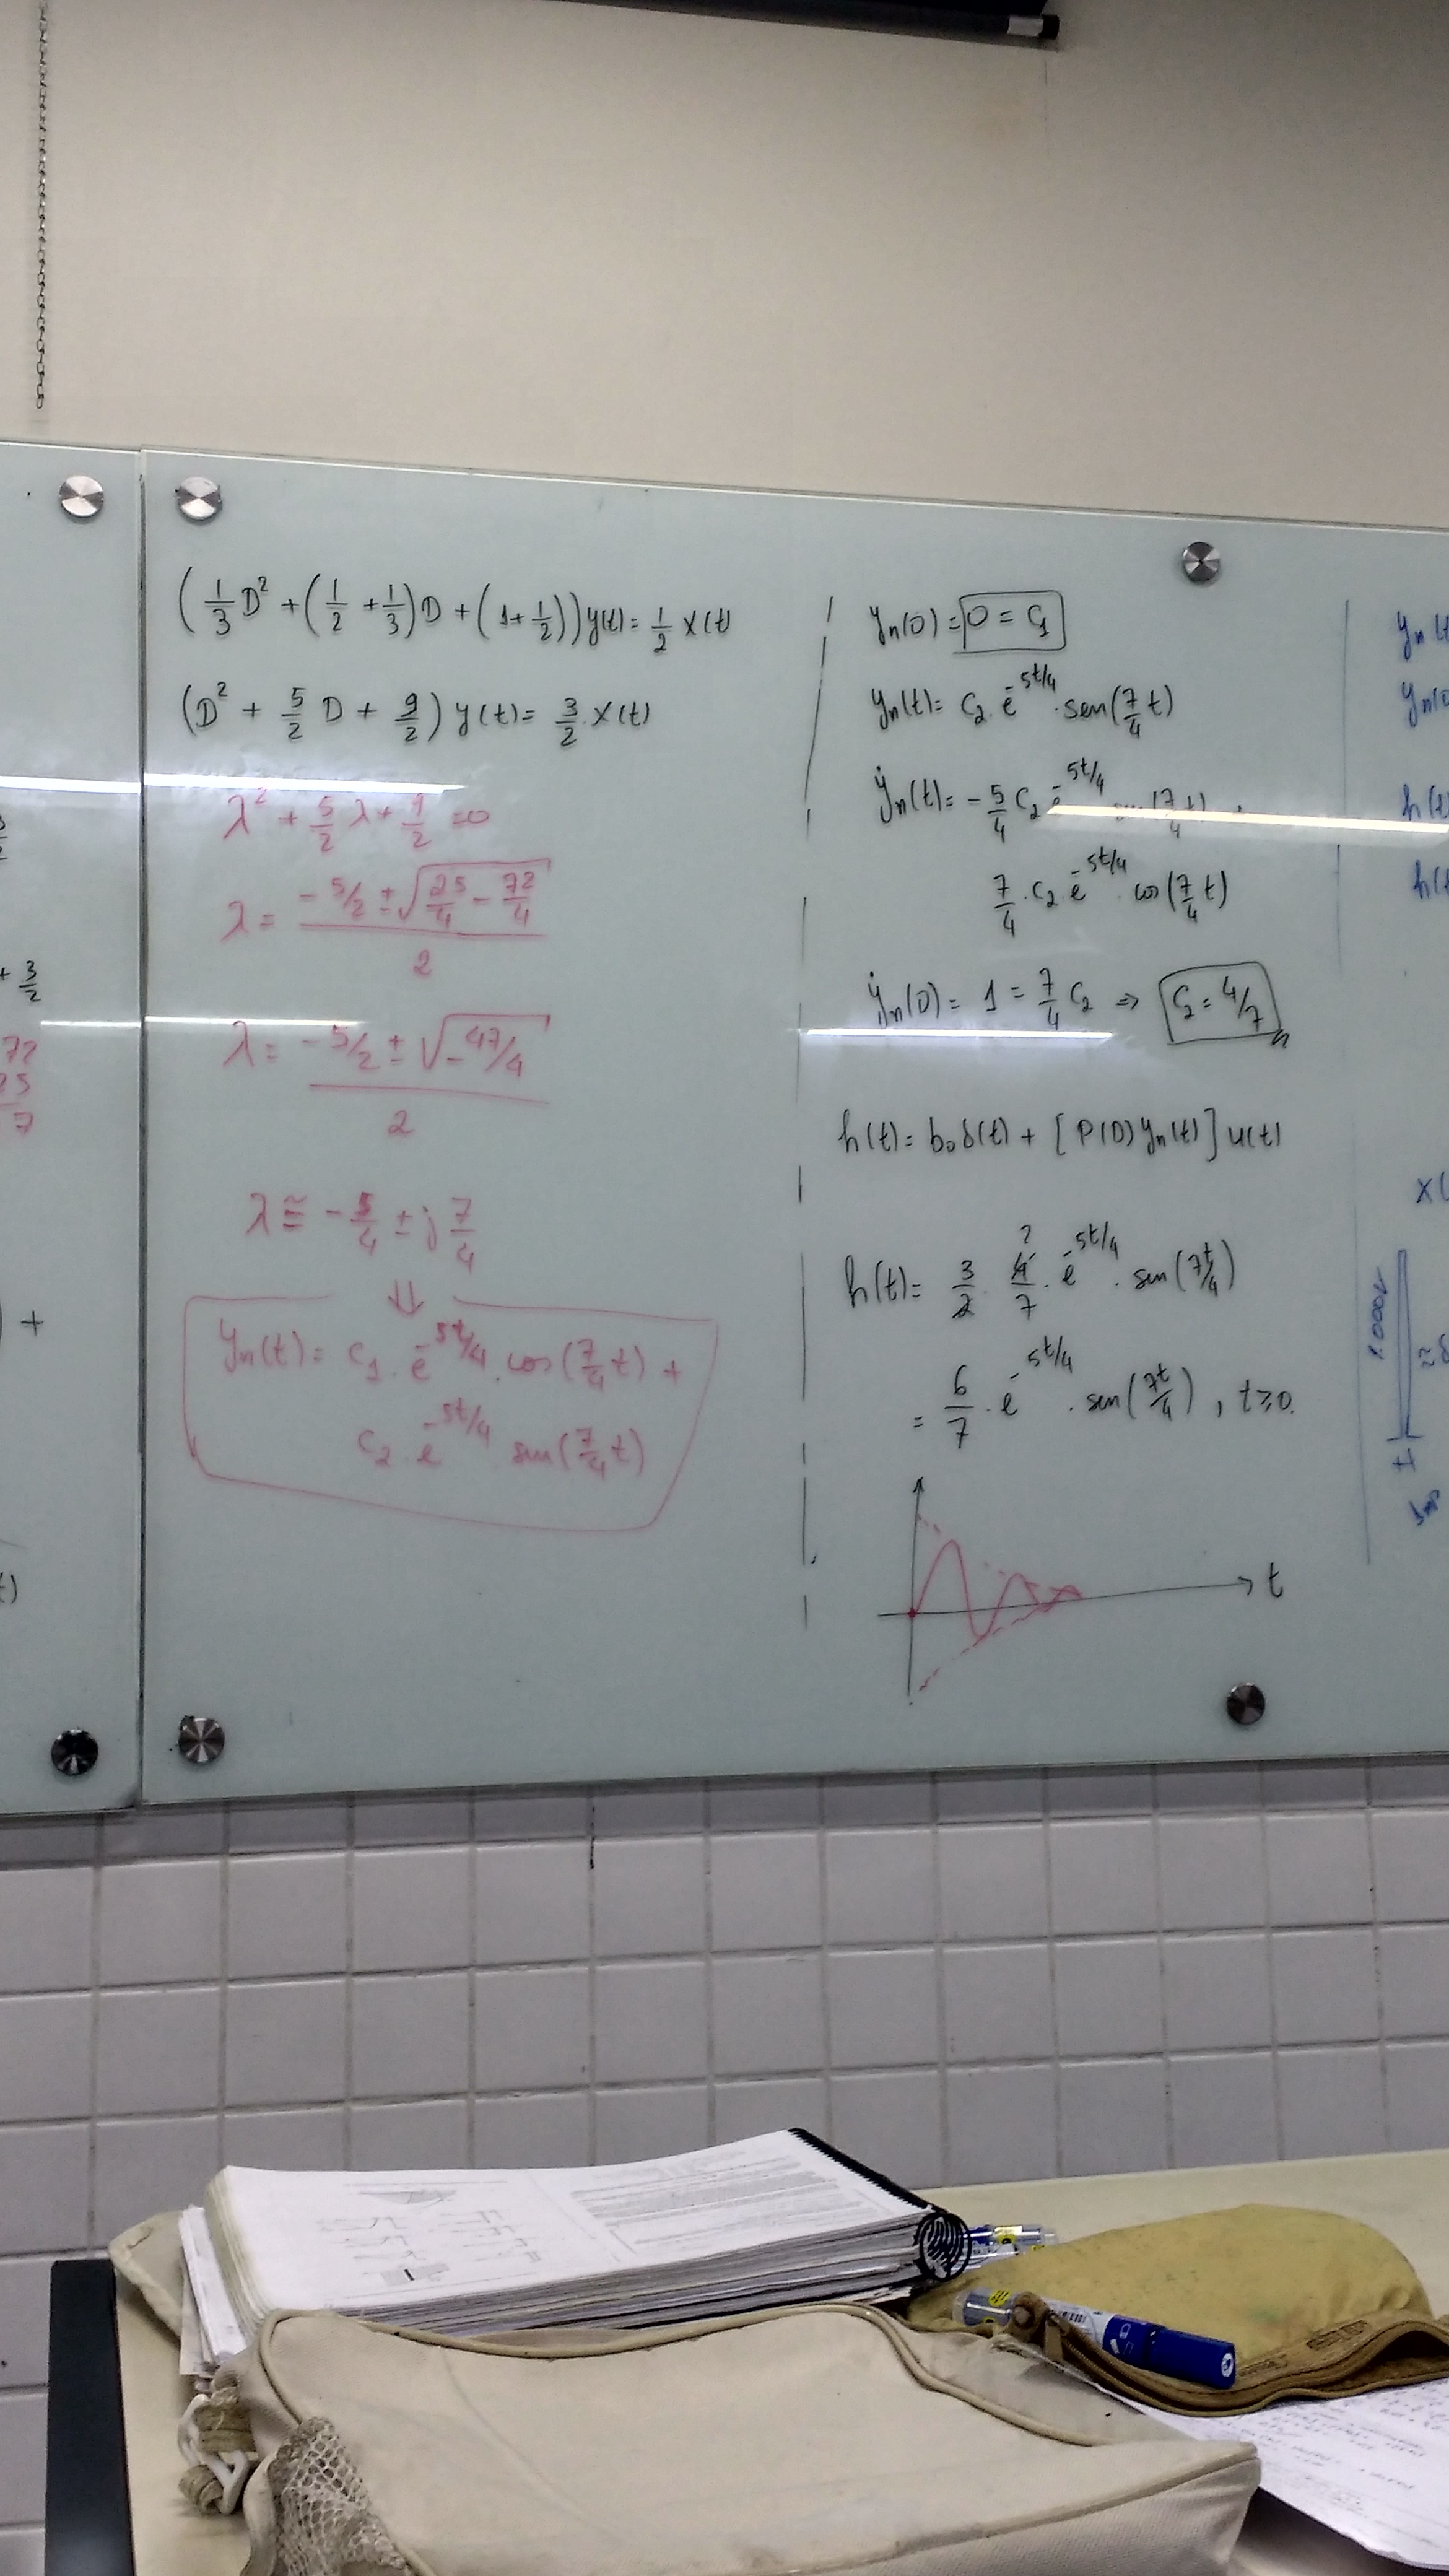 (1/3 D² + (1/2 + 1/3)D + (1 + 1/2)) y(t) = 1/2 x(t)
(D² + 5/2 D + 9/2) y(t) = 3/2 . x(t)
λ² + 5/2 λ + 9/2 = 0
λ = (-5/2 ± √(25/4 - 72/4)) / 2
λ = (-5/2 ± √(-47/4)) / 2
λ ≅ -5/4 ± j 7/4
⇓
yn(t) = c1 . e^(-5t/4) . cos(7/4 t) +
c2 . e^(-5t/4) sin(7/4 t)
yn(0) = 0 = C1
yn(t) = C2 . e^(-5t/4) . sen(7/4 t)
ẏn(t) = -5/4 C2 e^(-5t/4)
7/4 . C2 e^(-5t/4) . cos(7/4 t)
ẏn(0) = 1 = 7/4 C2 ⇒ C2 = 4/7
h(t) = b0 δ(t) + [P(D) yn(t)] u(t)
h(t) = 3/2 . 4/7 . e^(-5t/4) . sen(7t/4)
= 6/7 . e^(-5t/4) . sen(7t/4), t ≥ 0.
t
+ 3/2
72
+